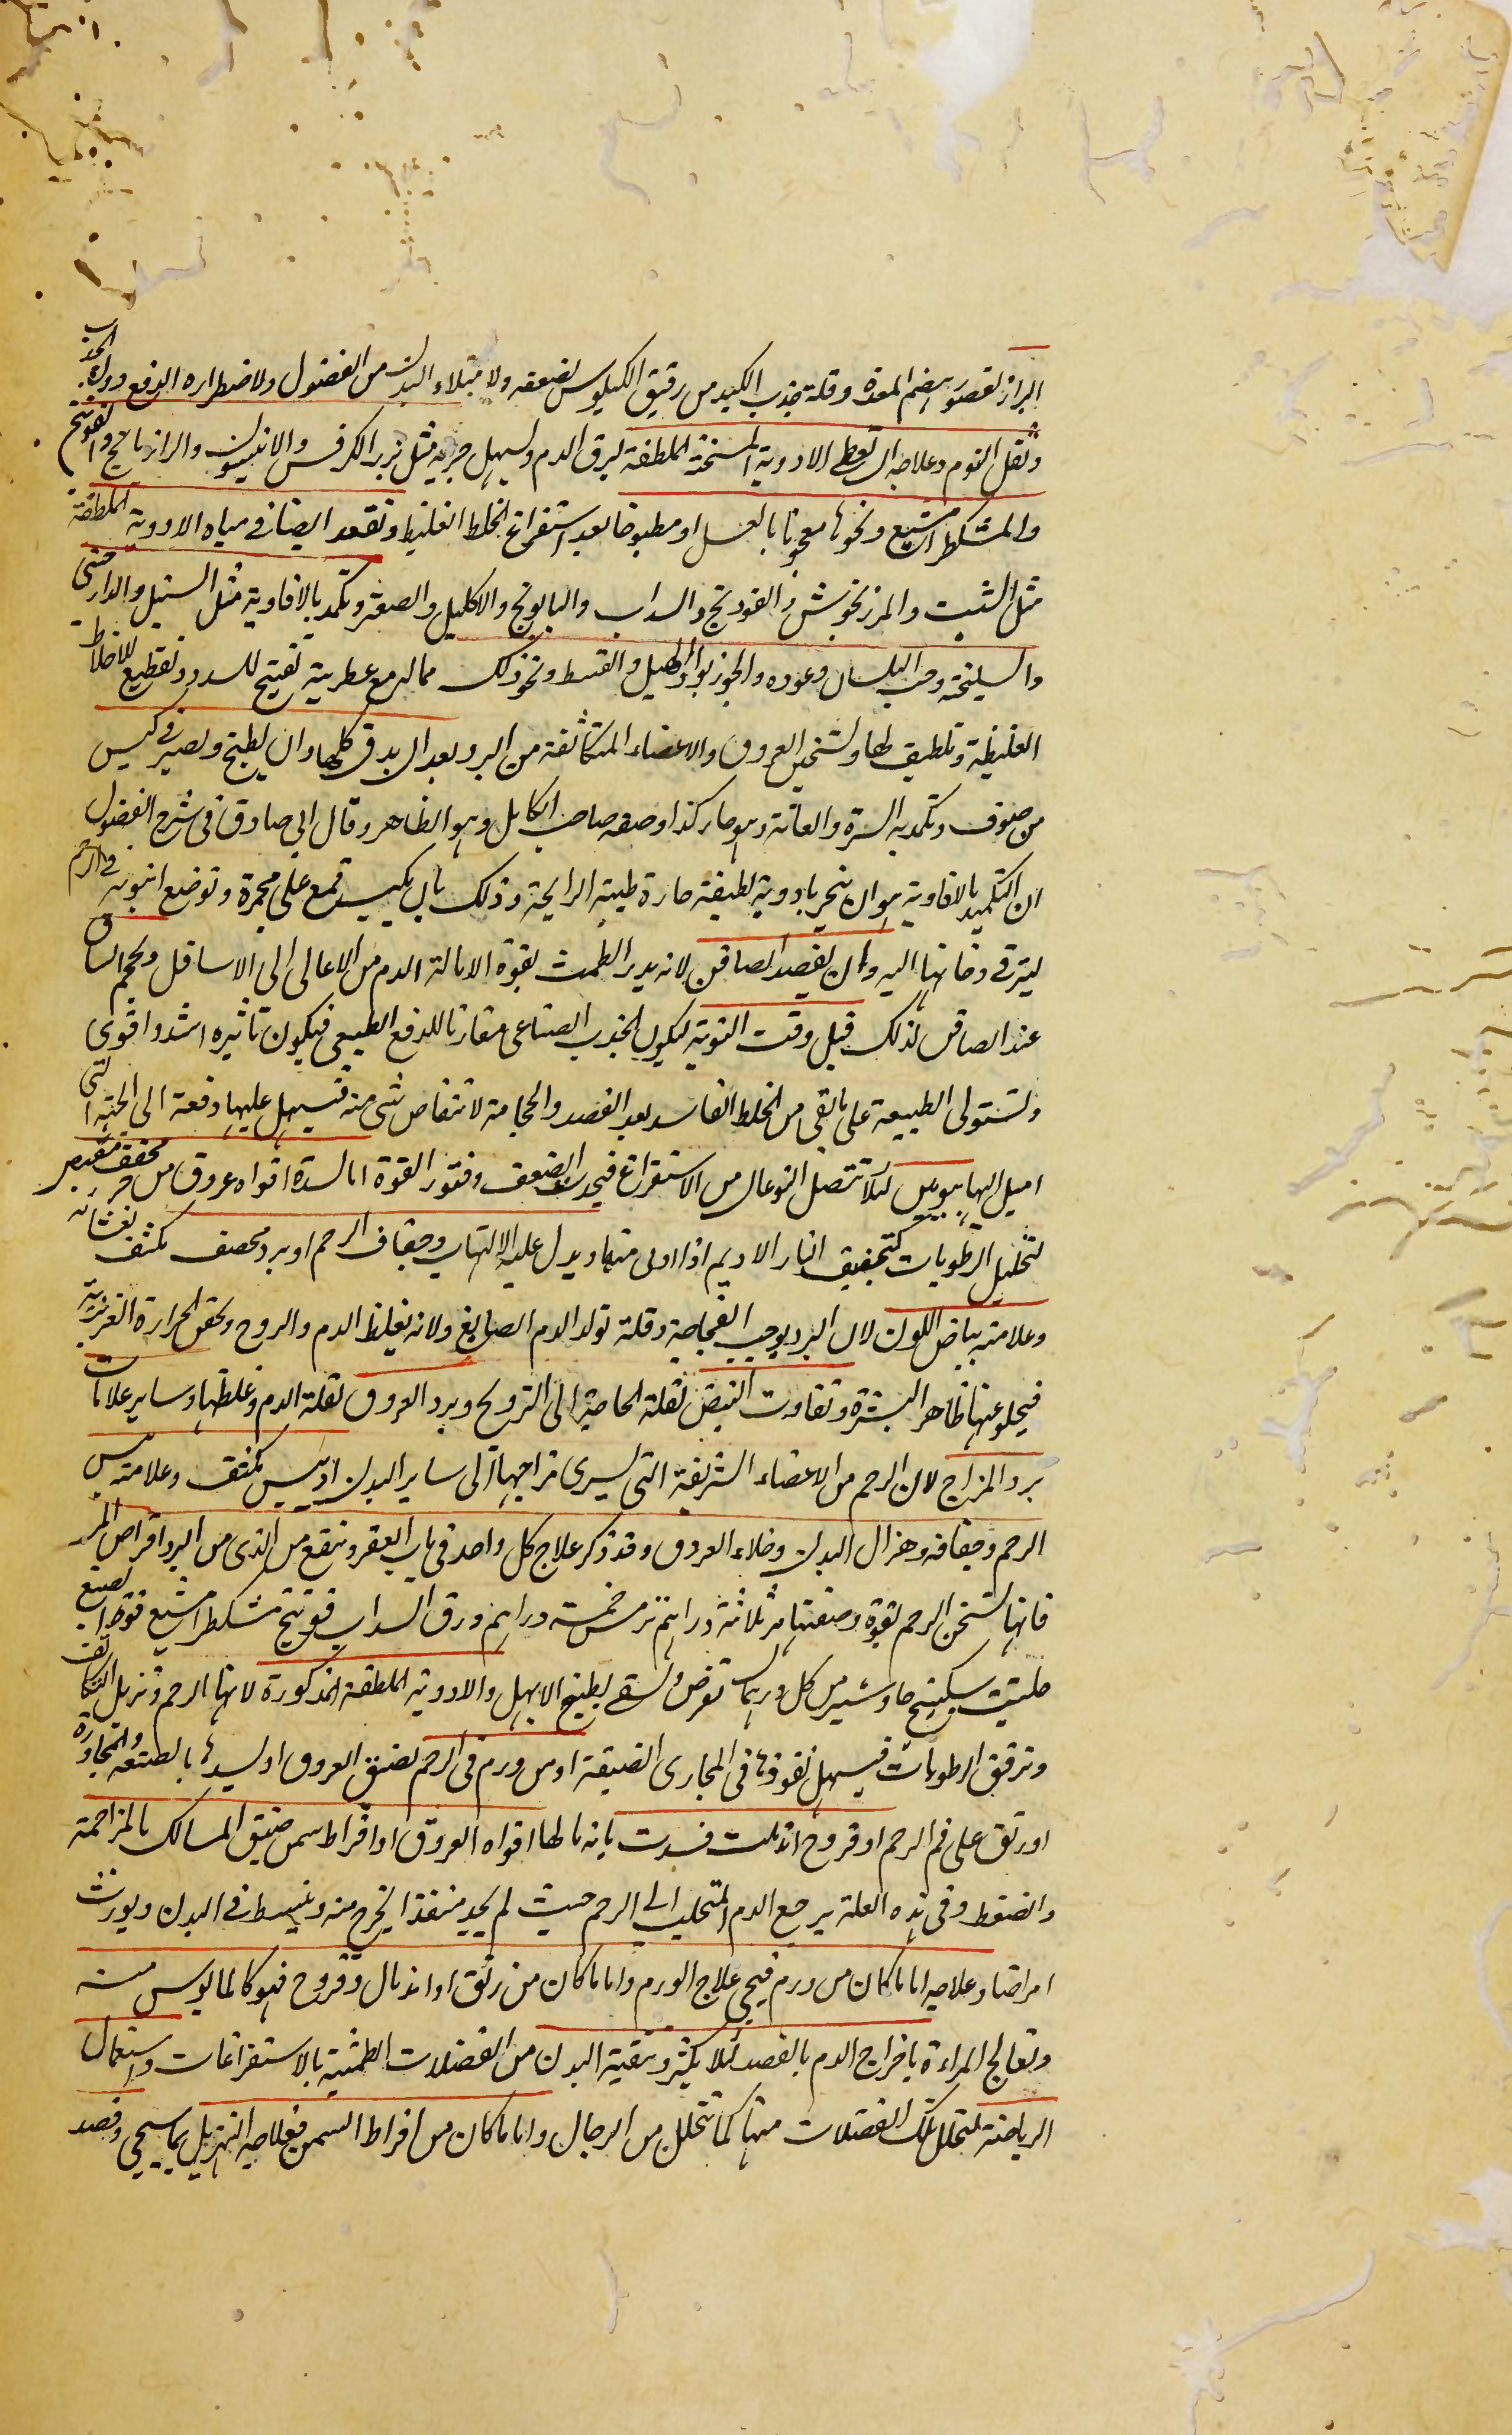 البراز لقصور هضم المعدة وقلة جذب الكبد من رقيق الكيلوس لضعفه ولامتلاء البدن من الفضول ولاضطراره الدفع دون الجذب
وثقل النوم وعلاجه ان تعطى الادوية المسخنة الملطفة ليرق الدم ويسهل جريه مثل بزر الكرفس والانيسون والرازيانج والفوتنج
والمشكطرامشيع ونحوها معجونا بالعسل او مطبوخا بعد استفراغ الخلط الغليظ وتقعد ايضا في مياه الادوية الملطفة
مثل الشبت والمرزنجوش والفودنج والسداب والبابونج والاكليل والصعتر وتكمد بالافاوية مثل السنبل والدارصيني
والسليخة وحب البلسان وعوده والجوزبوا والهيل والقسط ونحو ذلك مما له مع عطرية تفتيح للسدد وتقطيع للاخلاط
الغليظة وتلطيف لها وتسخين العروق والاعضاء المتكاثفة من البرد بعد ان يدق كلها وان يطبخ ويصير في كيس
من صوف وتكمد به السرة والعانة وهو حار كذا وصفه صاحب الكامل وهو الظاهر وقال ابي صادق في شرح الفصول
ان التكميد بالافاوية هو ان يبخر بادوية لطيفة حارة طيبة الرايحة وذلك بان يكبس قمع على مجمرة وتوضع انبوبه في الرحم
ليترقى دخانها اليه وان يفصد الصافن لانه يدر الطمث بقوة لامالة الدم من الاعالى الى الاسافل ويحجم الساق
عند الصافن لذلك قبل وقت النوبة ليكون الجذب الصناعى مقارنا للدفع الطبيعى فيكون تاثيره اشد واقوى
وتستولى الطبيعة على ما بقى من الخلط الفاسد بعد الفصد والحجامة لانتقاص شى منه فيسهل عليها دفعة الى الجهة التى
اميل اليها بيومين لئلا تتصل النوعان من الاستفراغ فيحدث الضعف وفتور القوة اما لسدة افواه عروق من حر مجفف مقبض
لتحليل الرطوبات كتجفيف النار الاديم اذا ادنى منها ويدل عليه الالتهاب وجفاف الرحم او برد محصف مكثف لغشائه
وعلامته بياض اللون لان البرد يوجب الفجاجة وقلة تولد الدم الصابغ ولانه يغلظ الدم والروح ويحقن الحرارة الغريزية
فيخلو عنها ظاهر البشرة وتفاوت النبض لقلة الحاجة الى الترويح وبرد العروق لقلة الدم وغلظها وساير علامات
برد المزاج لان الرحم من الاعضاء الشريفة التى يسرى مزاجها الى ساير البدن او يبس مكثف وعلامته يبس
الرحم وجفافه وهزال البدن وخلاء العروق وقد ذكر علاج كل واحد في باب العقر وينفع من الذى من البرد اقراص المر
فانها تسخن الرحم بقوة وصفتها مر ثلاثة دراهم ترمس خمسة دراهم ورق السداب فوتنج مشكطرامشيع فوة الصبغ
حلتيت سكبينج جاوشير من كل درهمان تقرص ويسقى بطبيخ الابهل والادوية الملطفة المذكورة لانها الرحم وتزيل التكاثف
وترقق الرطوبات فيسهل نفوذها في المجارى الضيقة او من ورم في الرحم لضيق العروق او ليسدها بالضغط والمجاورة
او رتق على فم الرحم او قروح اندملت فسدت بانه مالها افواه العروق او افراط سمن ضيق المسالك بالمزاحمة
والضغط وفي هذه العلة يرجع الدم المتحلب الى الرحم حيث لم يجد منفذا ليخرج منه وينبسط في البدن ويورث
امراضا وعلاجه اما ما كان من ورم فيجى علاج الورم واما ما كان من رتق او اندمال وقروح فهو كالمايوس منه
وتعالج المراءة باخراج الدم بالفصد لئلا يكثر وتنقية البدن من الفضلات الطمثية بالاستفراغات واستعمال
الرياضة لتحلل تلك الفضلات منها كما تتحلل من الرجال واما ما كان من افراط السمن فعلاجه التهزيل بما سيجى وفصد